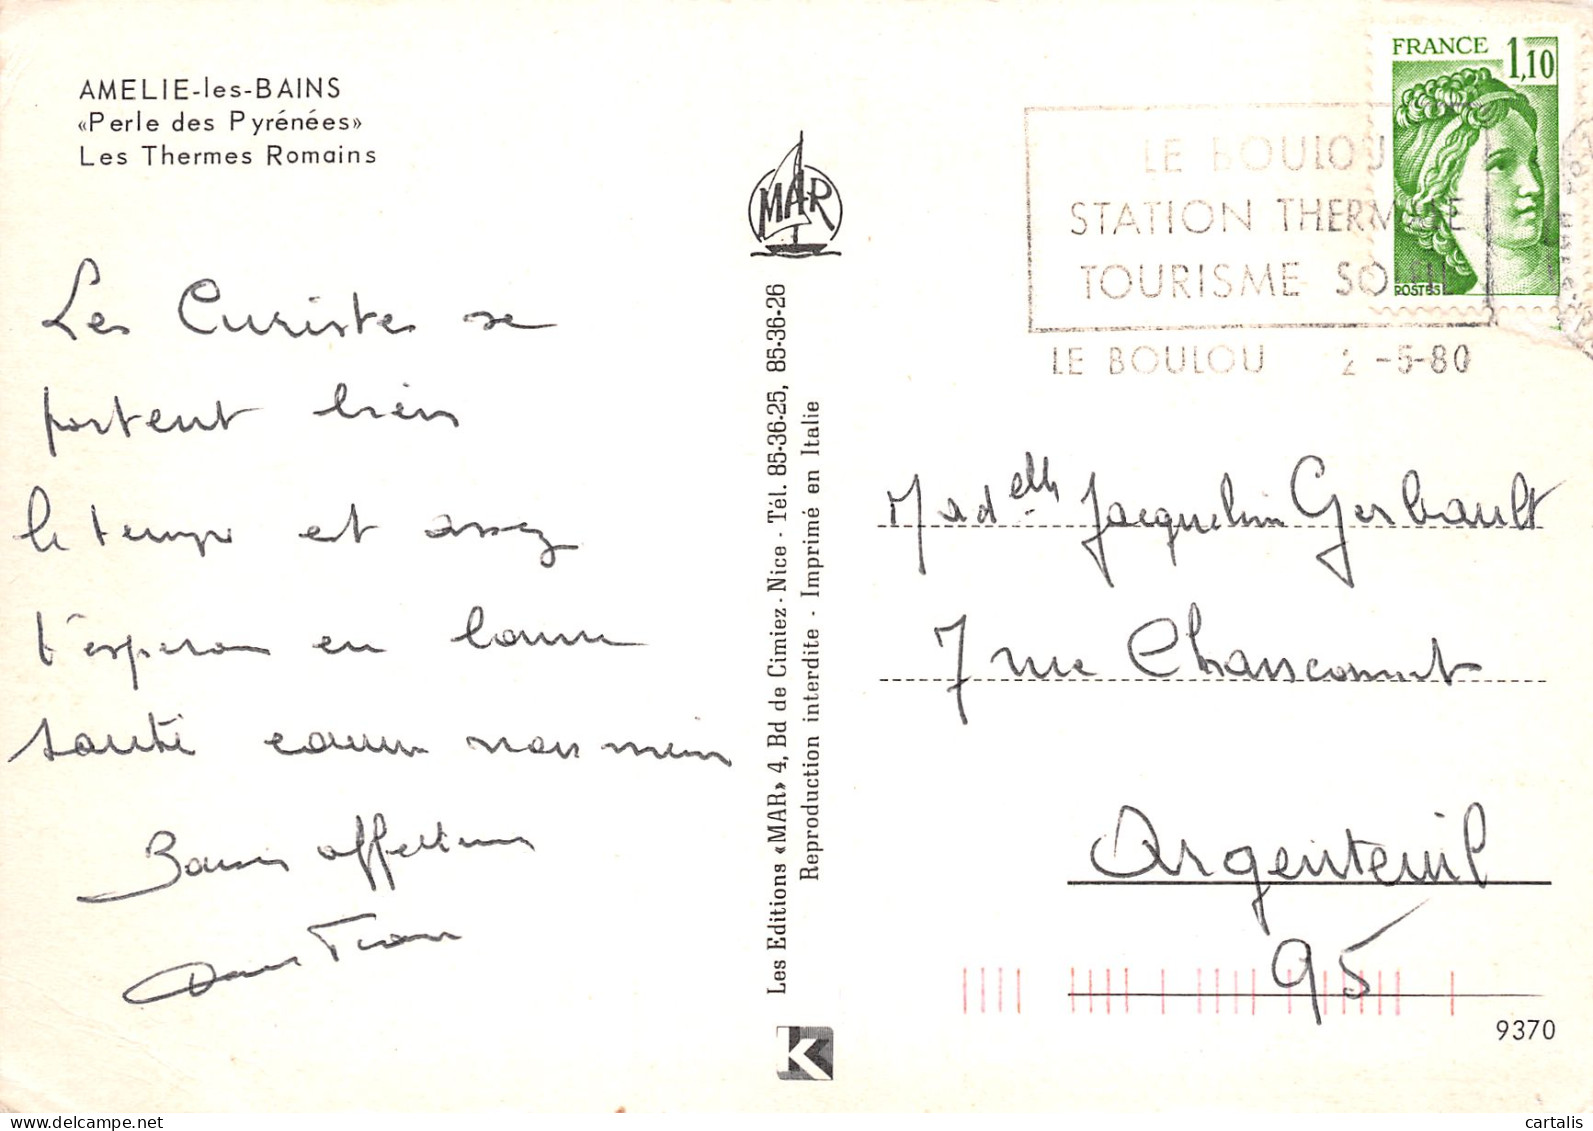 AMELIE-les-BAINS
«Perle des Pyrénées»
Les Thermes Romains
Les Curistes se
portent bien
le temps est assez
t'esperons en bonne
santé comme nous mêmes
Baisers affectueux
MAR
Les Editions «MAR» 4, Bd de Cimiez - Nice - Tél. 85-36-25, 85-36-26
Reproduction interdite - Imprimé en Italie
K
FRANCE 1,10
POSTES
LE BOULOU
STATION THERMALE
TOURISME SOLEIL
LE BOULOU 2 -5-80
Madelle Jacqueline Gerbault
7 rue
Argenteuil
95
9370
cartalis